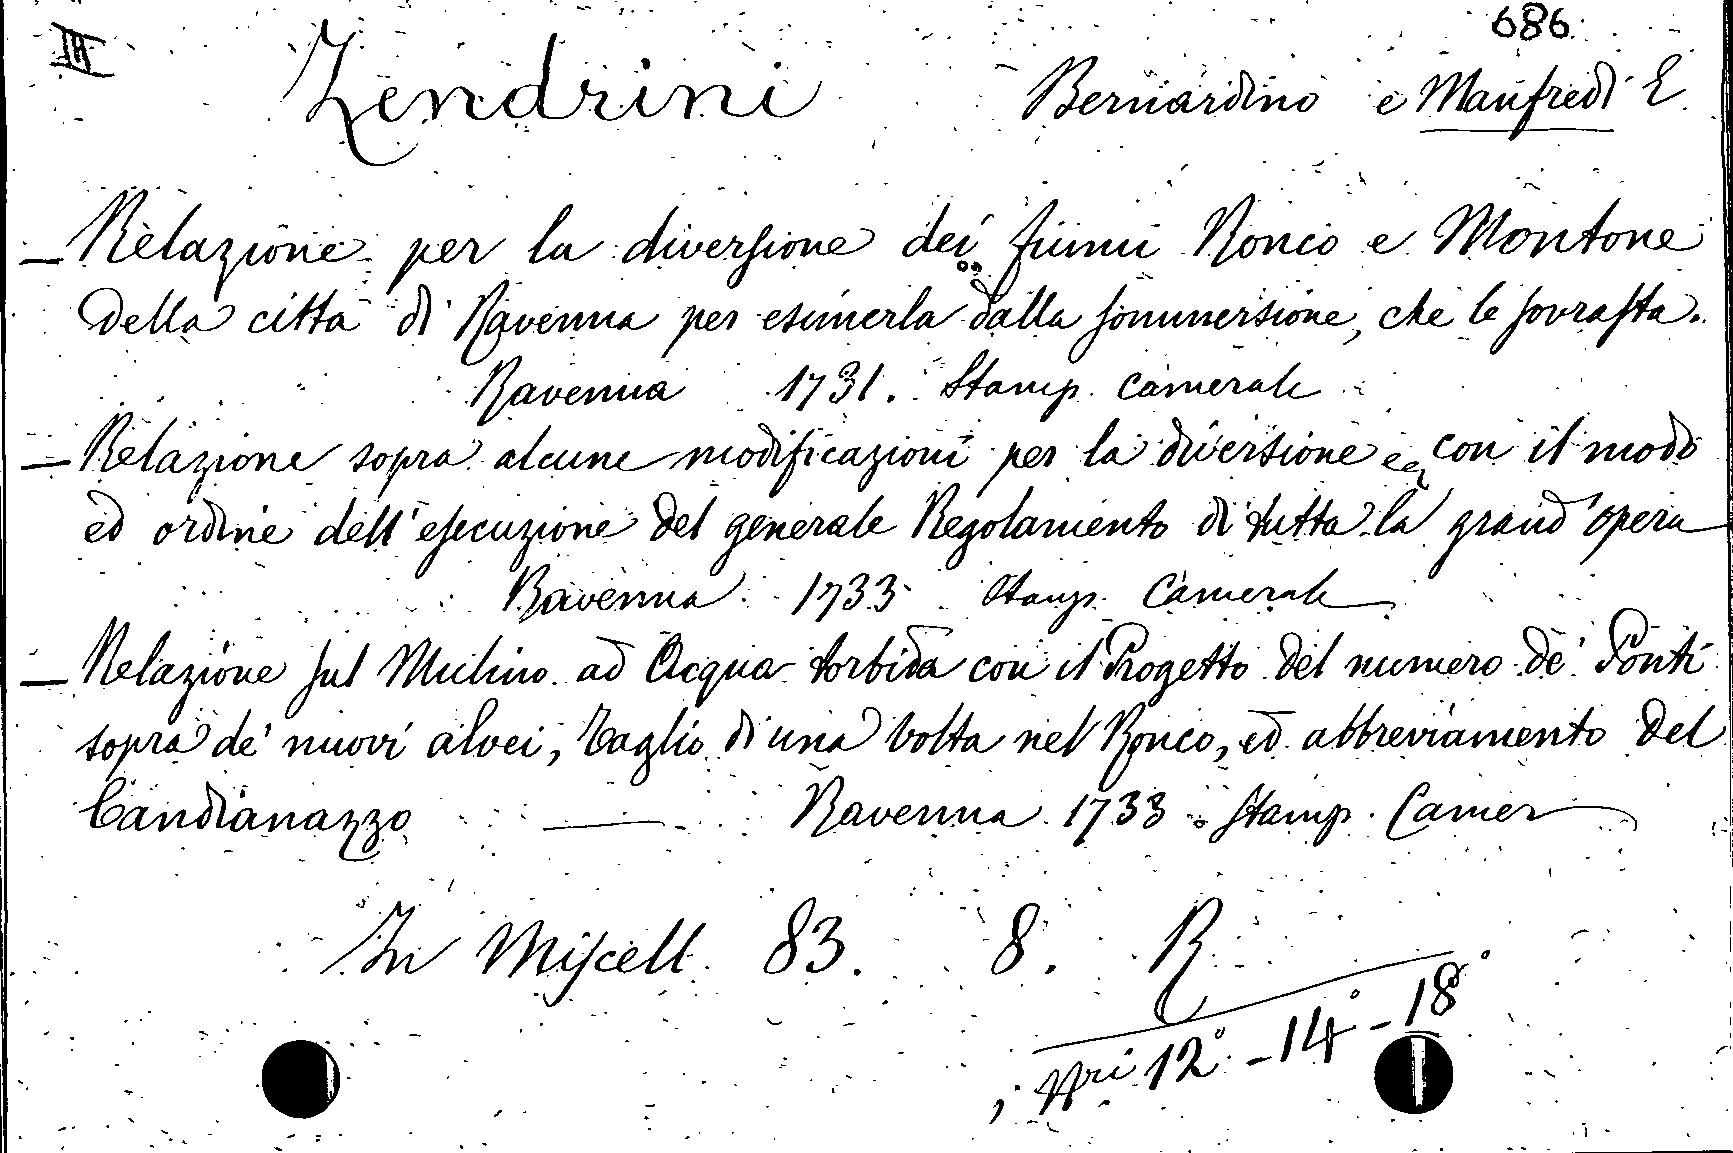 III
686
Zendrini Bernardino e Manfredi E.
– Relazione per la diversione dei fiumi Ronco e Montone
della città di Ravenna per esimerla dalla sommersione, che le sovrasta.
Ravenna 1731. Stamp. Camerale
– Relazione sopra alcune modificazioni per la diversione con il modo
ed ordine dell'esecuzione del generale Regolamento di tutta la grand'opera
Ravenna 1733 Stamp. Camerale
– Relazione sul Mulino ad Acqua torbida con il Progetto del numero de' Ponti
sopra de' nuovi alvei, Taglio di una Volta nel Ronco, ed abbreviamento del
Candianazzo — Ravenna 1733. Stamp. Camer
In Miscell. 83. 8. R
, Nri 12° - 14° - 18°